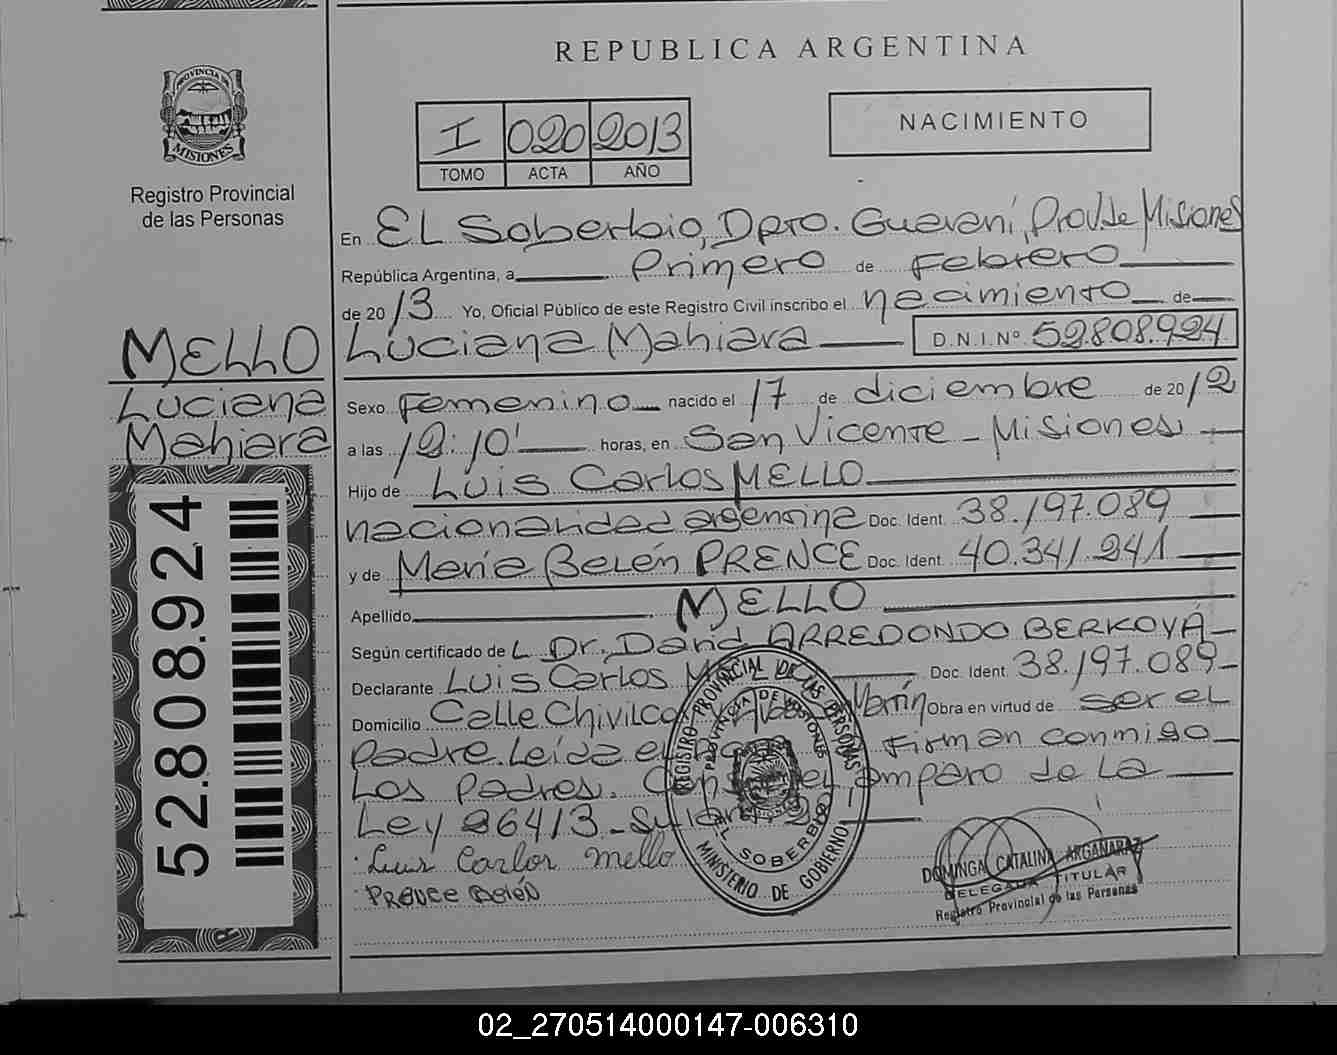 REPUBLICA ARGENTINA
PROVINCIA DE
MISIONES
Registro Provincial
de las Personas
I 020 2013
TOMO ACTA AÑO
NACIMIENTO
En El Soberbio, Dpto. Guaraní, Prov. de Misiones
República Argentina, a Primero de Febrero
de 2013 Yo, Oficial Público de este Registro Civil inscribo el nacimiento de
Luciana Mahiara D.N.I.Nº 52.808.924
Sexo Femenino nacido el 17 de diciembre de 2012
a las 12:10' horas, en San Vicente - Misiones
Hijo de Luis Carlos MELLO
nacionalidad argentina Doc. Ident. 38.197.089
y de María Belén PRENCE Doc. Ident. 40.341.241
Apellido MELLO
Según certificado de L Dr. David ARREDONDO BERKOVA
Declarante Luis Carlos Doc. Ident. 38.197.089
Domicilio Calle Chivilcoy Martín Obra en virtud de ser el
padre. Leída el Firman conmigo
Los padres. el amparo de La
Ley 26413
Luis Carlos Mello
PRENCE Belen
MELLO
Luciana
Mahiara
52.808.924
REGISTRO PROVINCIAL DE LAS PERSONAS
PROVINCIA DE MISIONES
EL SOBERBIO
MINISTERIO DE GOBIERNO
DOMINGA CATALINA ARGAÑARAZ
DELEGADA TITULAR
Registro Provincial de las Personas
02_270514000147-006310